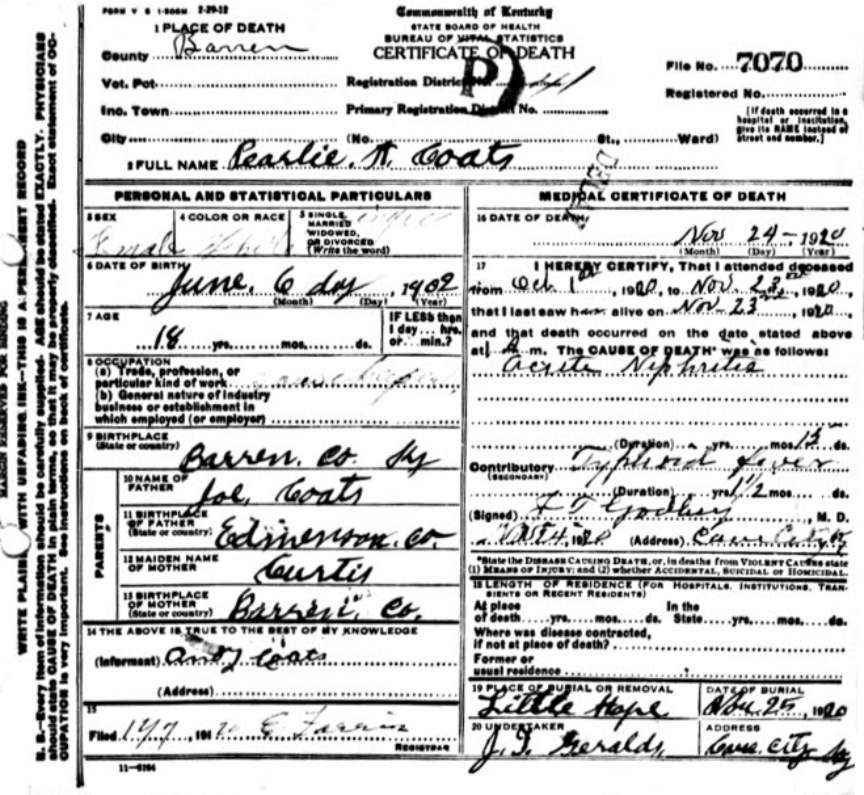 FORM V S 1-500M 2-29-12
Commonwealth of Kentucky
STATE BOARD OF HEALTH
BUREAU OF VITAL STATISTICS
CERTIFICATE OF DEATH
1 PLACE OF DEATH
County Barren
Vot. Pot.
Inc. Town
City
Registration District No.
Primary Registration District No.
(No. St., Ward)
File No. 7070
Registered No.
[If death occurred in a
hospital or institution,
give its NAME instead of
street and number.]
2 FULL NAME Pearlie. A. Coats
PERSONAL AND STATISTICAL PARTICULARS
3 SEX
Female
4 COLOR OR RACE
White
5 SINGLE,
MARRIED
WIDOWED,
OR DIVORCED
(Write the word)
6 DATE OF BIRTH
June, 6 day, 1902
(Month) (Day) (Year)
7 AGE
18 yrs. mos. ds.
IF LESS than
1 day... hrs.
or min.?
8 OCCUPATION
(a) Trade, profession, or
particular kind of work
(b) General nature of industry
business or establishment in
which employed (or employer)
9 BIRTHPLACE
(State or country)
Barren. Co. Ky
PARENTS
10 NAME OF
FATHER
Joe. Coats
11 BIRTHPLACE
OF FATHER
(State or country)
Edmenson. Co.
12 MAIDEN NAME
OF MOTHER
Curtis
13 BIRTHPLACE
OF MOTHER
(State or country)
Barren. Co.
14 THE ABOVE IS TRUE TO THE BEST OF MY KNOWLEDGE
(Informant) Andy Coats
(Address)
15
Filed
REGISTRAR
11-6184
MEDICAL CERTIFICATE OF DEATH
16 DATE OF DEATH
Nov 24- 1920
(Month) (Day) (Year)
17 I HEREBY CERTIFY, That I attended deceased
from Oct 1st, 1920, to Nov. 23rd, 1920,
that I last saw h alive on Nov-23rd, 1920,
and that death occurred on the date stated above
at m. The CAUSE OF DEATH* was as follows:
Acute Nephritis
(Duration) yrs. mos. 15 ds.
Contributory Typhoid fever
(SECONDARY)
(Duration) yrs. 1 1/2 mos. ds.
(Signed) M. D.
(Address) Cave City Ky
*State the DISEASE CAUSING DEATH, or, in deaths from VIOLENT CAUSES state
(1) MEANS OF INJURY; and (2) whether ACCIDENTAL, SUICIDAL or HOMICIDAL.
18 LENGTH OF RESIDENCE (FOR HOSPITALS, INSTITUTIONS, TRAN-
SIENTS OR RECENT RESIDENTS)
At place In the
of death yrs. mos. ds. State yrs. mos. ds.
Where was disease contracted,
if not at place of death?
Former or
usual residence
19 PLACE OF BURIAL OR REMOVAL
Little Hope
DATE OF BURIAL
Nov. 25, 1920
20 UNDERTAKER
J. T. Geralds
ADDRESS
Cave. City Ky
MARGIN RESERVED FOR BINDING
WRITE PLAINLY WITH UNFADING INK—THIS IS A PERMANENT RECORD
N. B.—Every item of information should be carefully supplied. AGE should be stated EXACTLY. PHYSICIANS
should state CAUSE OF DEATH in plain terms, so that it may be properly classified. Exact statement of OC-
CUPATION is very important. See instructions on back of certificate.